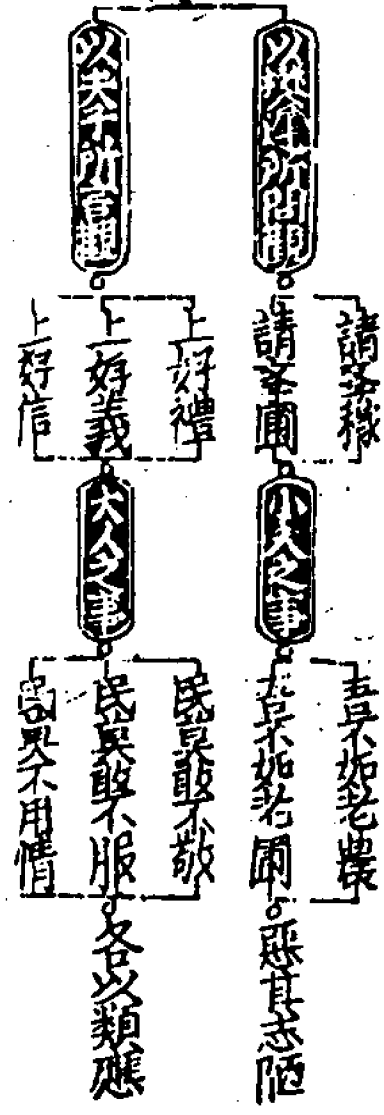 以樊遲所問觀
請學稼
請學圃
小人之事
吾不如老農
吾不如老圃
其志陋
以夫子所言觀
上好禮
上好義
上好信
大人之事
民莫敢不敬
民莫敢不服
民莫不用情
各以類應